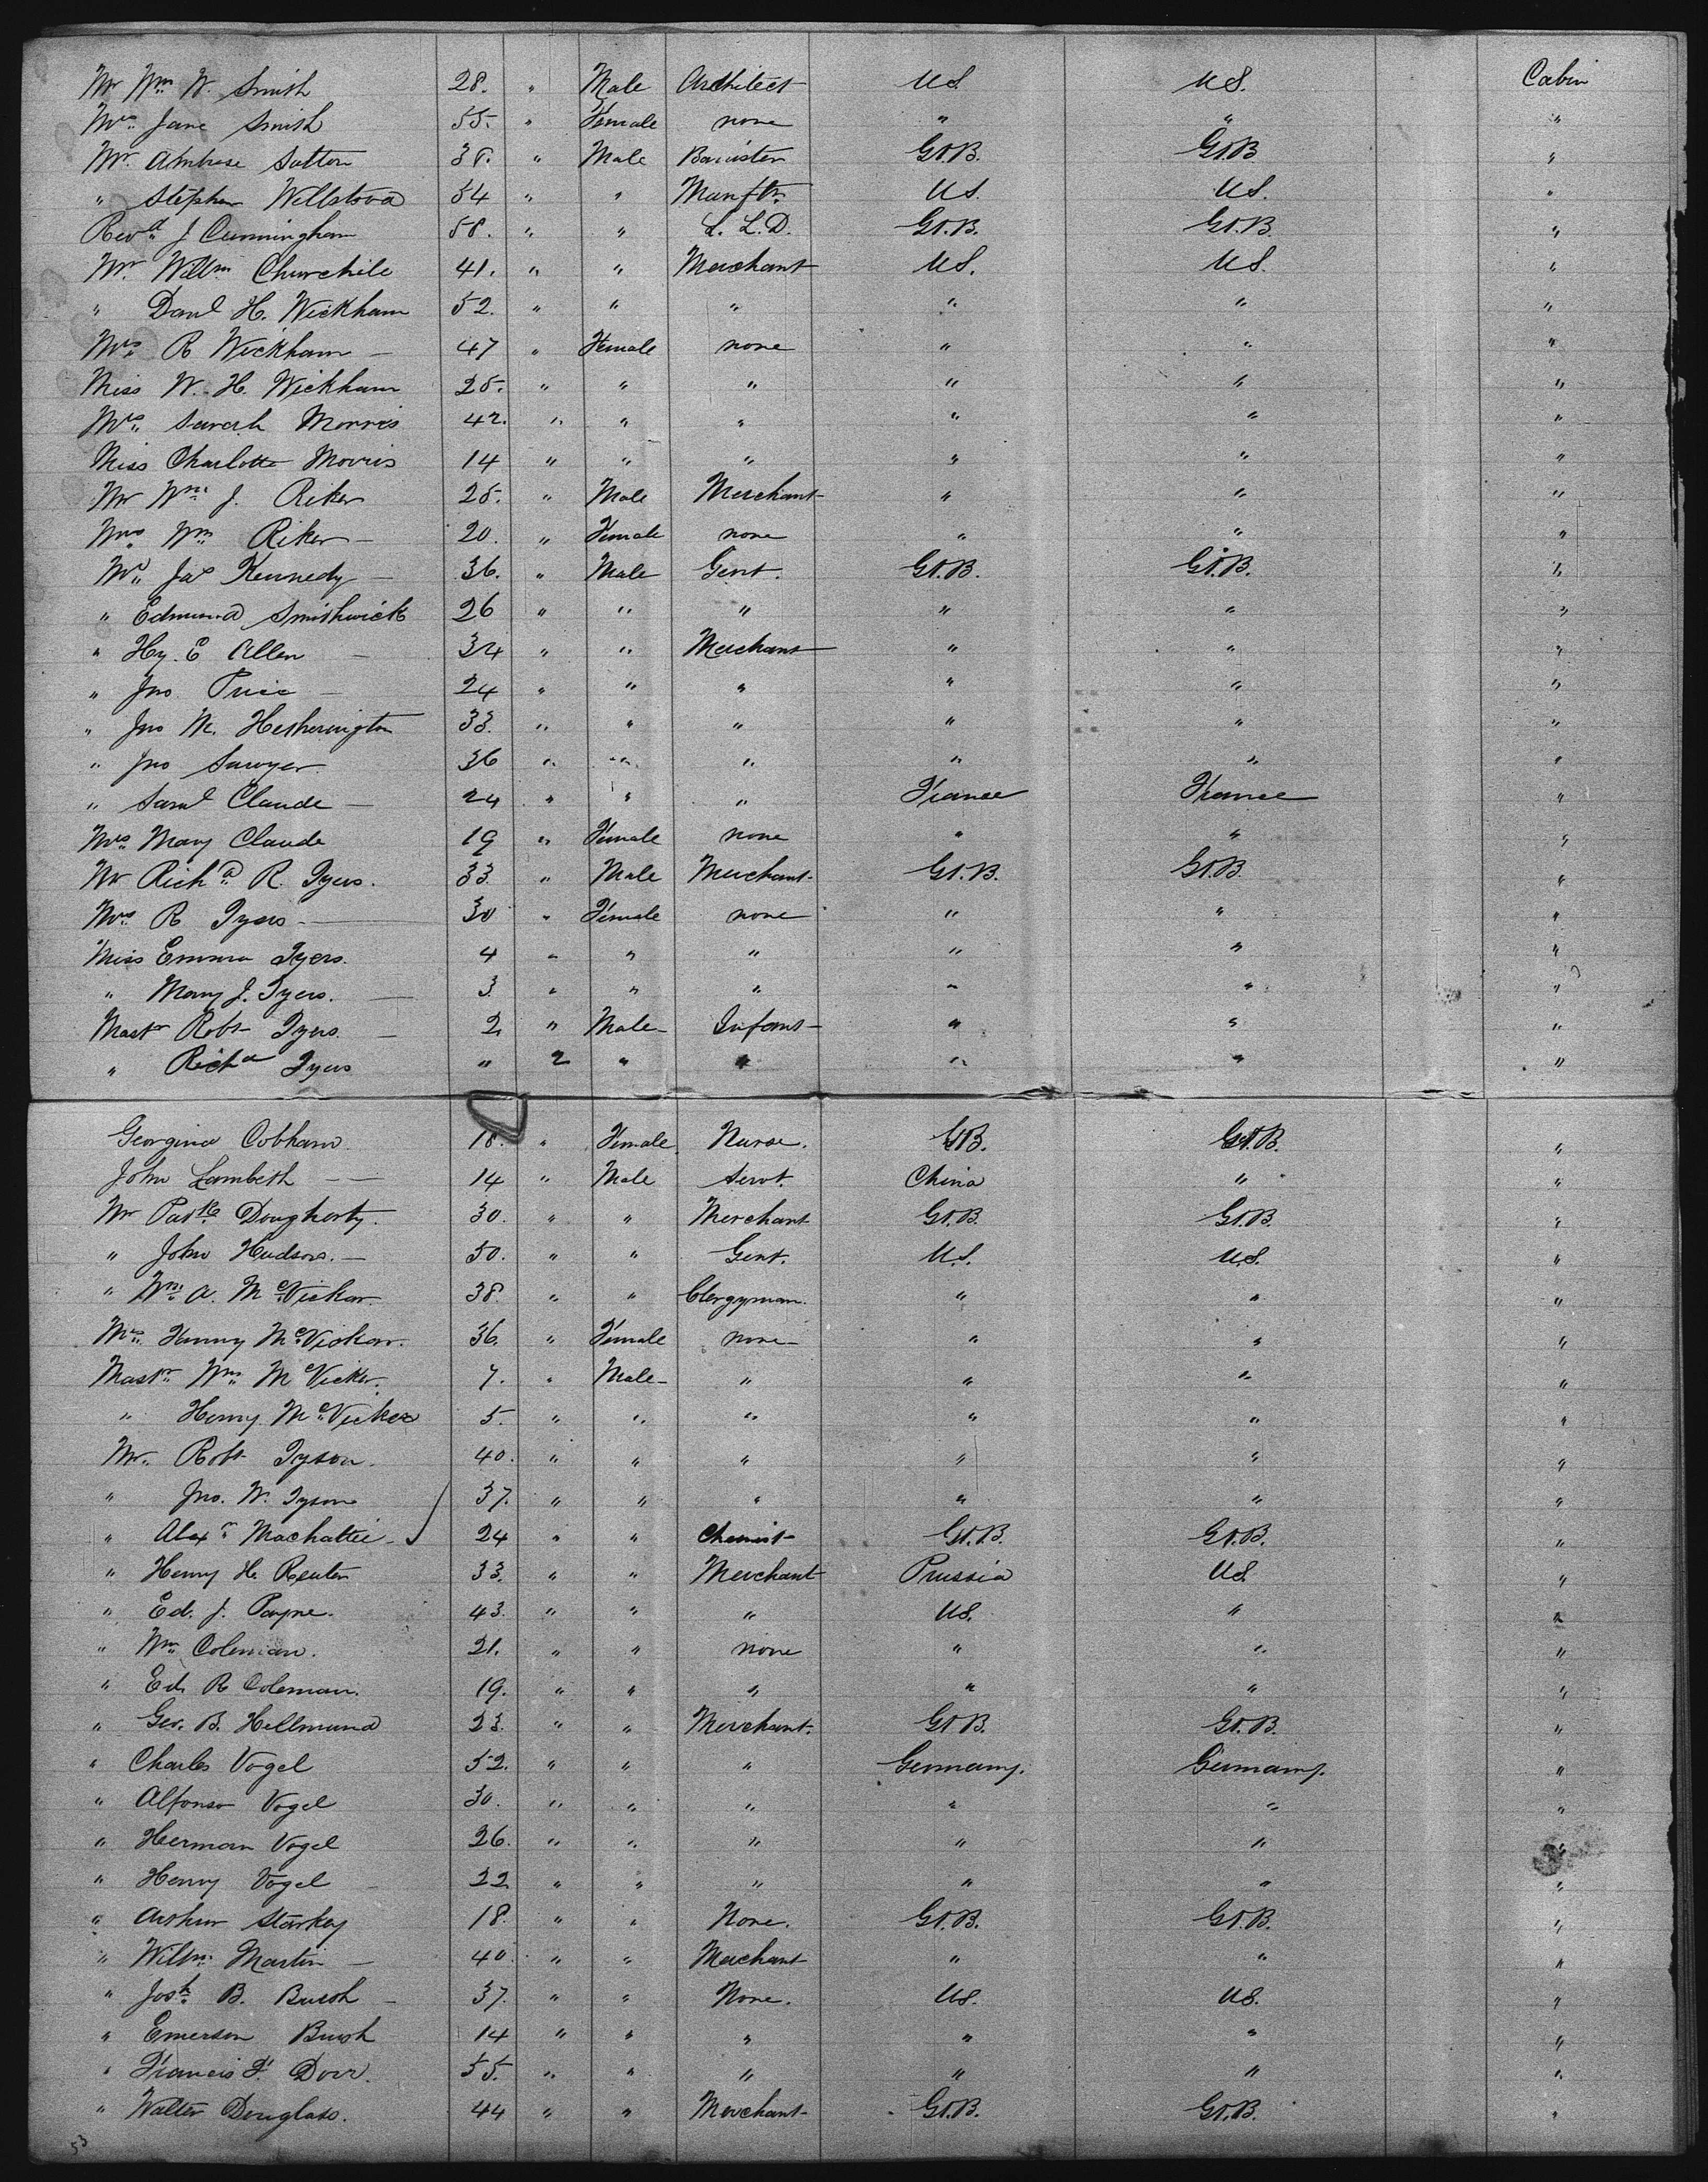 Mr Wm W. Smith 28. " Male Architect U.S. U.S. Cabin
Mrs Jane Smith 55. " Female none " " "
Mr. Ambrose Sutton 38. " Male Barrister Gt.B. Gt.B "
" Stephen 54 " " Manftr. U.S. U.S. "
Revd J Cunningham 58. " " L.L.D. Gt.B. Gt.B. "
Mr Willm Churchile 41. " " Merchant U.S. U.S. "
" Danl H. Wickham 52. " " " " " "
Mrs R Wickham - 47 " Female none " " "
Miss W. H. Wickham 25. " " " " " "
Mrs Sarah Morris 42. " " " " " "
Miss Charlotte Morris 14 " " " " " "
Mr Wm J. Riker 25. " Male Merchant " " "
Mrs Wm Riker - 20. " Female none " " "
Mr Jas Kennedy - 36. " Male Gent. Gt.B. Gt.B. "
" Edmund Smithwick 26 " " " " " "
" Hy. E Allen - 34 " " Merchant " " "
" Jno. Price - 24 " " " " " "
" Jno M. Hetherington 33. " " " " " "
" Jno Sawyer 36 " " " " " "
" Saml Claude - 24 " " " France France "
Mrs Mary Claude 19 " Female none " " "
Mr Richd R. Tyers. 33. " Male Merchant Gt.B. Gt.B. "
Mrs R Tyers - 30 " Female none " " "
Miss Emma Tyers. 4 " " " " " "
" Mary J. Tyers. - 3. " " " " " "
Mastr Robt Tyers. - 2 " Male Infant " " "
" Richd Tyers " 2 " " " " "
Georgina Cobham 18. " Female Nurse. Gt.B. Gt.B. "
John Lambeth - - 14 " Male Servt. China " "
Mr Patk Dougherty. 30. " " Merchant Gt.B. Gt.B. "
" John Hudson. - 50. " " Gent. U.S. U.S. "
" Wm A. McVickar. 38. " " Clergyman. " " "
Mrs Fanny McVickar. 36. " Female none " " "
Mastr Wm McVicker. 7. " Male " " " "
" Henry McVicker 5. " " " " " "
Mr. Robt Tyson. 40. " " " " " "
" Jno. W. Tyson 37. " " " " " "
" Alexr Machattie 24 " " Chemist Gt.B. Gt.B. "
" Henry H. Reuter 33. " " Merchant Prussia U.S. "
" Ed. J. Payne. 43. " " " U.S. " "
" Wm Coleman. 21. " " none " " "
" Ed. R Coleman. 19. " " " " " "
" Geo. B. Hellmund 23. " " Merchant. Gt B. Gt.B. "
" Charles Vogel 52. " " " Germany. Germany. "
" Alfonso Vogel 30. " " " " " "
" Herman Vogel 26. " " " " " "
" Henry Vogel 22 " " " " " "
" Arthur Starkey 18. " " None. Gt.B. Gt.B. "
" Willm Martin - 40 " " Merchant " " "
" Josh B. Bursh - 37. " " None. U.S. U.S. "
" Emerson Bursh 14 " " " " " "
" Francis F. Dorr. 55. " " " " " "
" Walter Douglass. 44 " " Merchant Gt.B. Gt.B. "
53